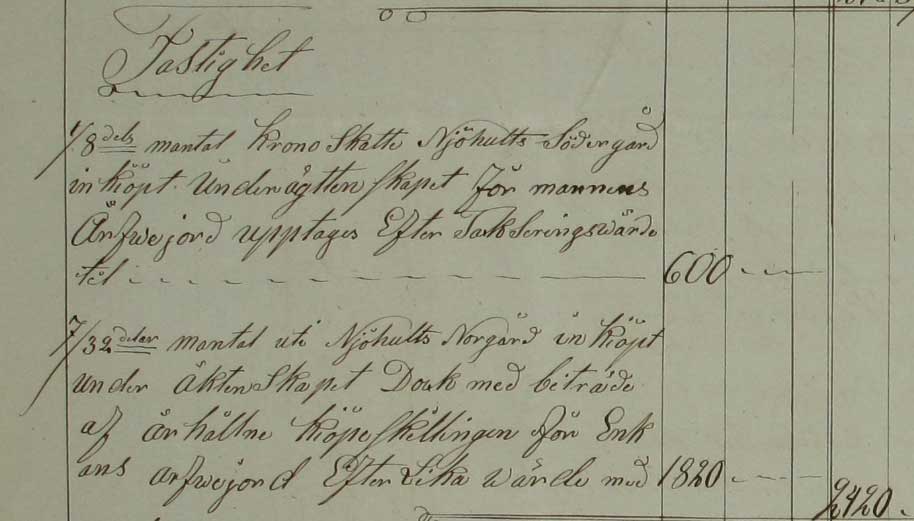 Fastighet
1/8 dels mantal Krono Skatte Njöhults Södergård
inköpt Under ägtten skapet för mannens
Ärfwejord upptages Efter Taxkseringswärde
til 600
7/32 delar mantal uti Njöhults Norgård in köpt
under äktenskapet Dock med biträde
af ärhållne kiöpeskillingen för Enk
ans arfwejord Efter Lika wärde med 1820
2420